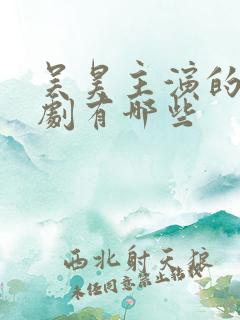 吴昊主演的
劇有哪些
西北射天狼
未经同意禁止转载